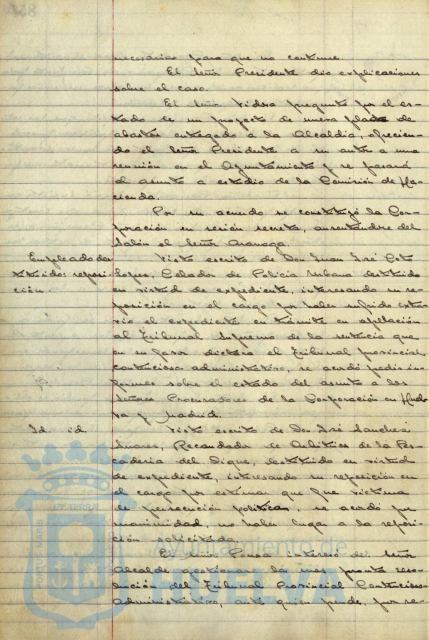 necesárias para que no continue.
El Señor Presidente dió explicaciones
sobre el caso.
El Señor preguntó por el es-
tado de un proyecto de nueva plaza de
abastos entregado á la Alcaldía, ofrecien-
do el Señor Presidente a su autor a una
reunión en el Ayuntamiento y se pasará
el asunto a estudio de la Comisión de Ha-
cienda.
Por su acuerdo se constituyó la Cor-
poración en sesión secreta, ausentándose del
Salón el Señor
Empleado des
tituido: reposi-
ción.
Visto escrito de Don Juan José
López, Celador de Policía Urbana destituido
en virtud de expediente, interesando su re-
posición en el cargo por haber sufrido extra-
vío el expediente en trámite en apelación
al Tribunal Supremo de la sentencia que
en su favor dictara el Tribunal provincial
contencioso administrativo, se acordó pedir in-
formes sobre el estado del asunto a los
Señores Procuradores de la Corporación en Huel-
va y Madrid.
Id. id
Visto escrito de Don José Sanchez
Suarez, Recaudador de Arbitrios de la Pes-
caderia del Dique, destituido en virtud
de expediente, interesando su reposición en
el cargo por estimar que fue victima
de persecución politica, se acordó por
unanimidad, no haber lugar a la reposi-
ción solicitada.
El Señor Ponce interesó del Señor
Alcalde gestionara la mas pronta reso-
lución del Tribunal Provincial Contencioso
Administrativo, ante quien pende, por re-
Ayuntamiento de
HUELVA